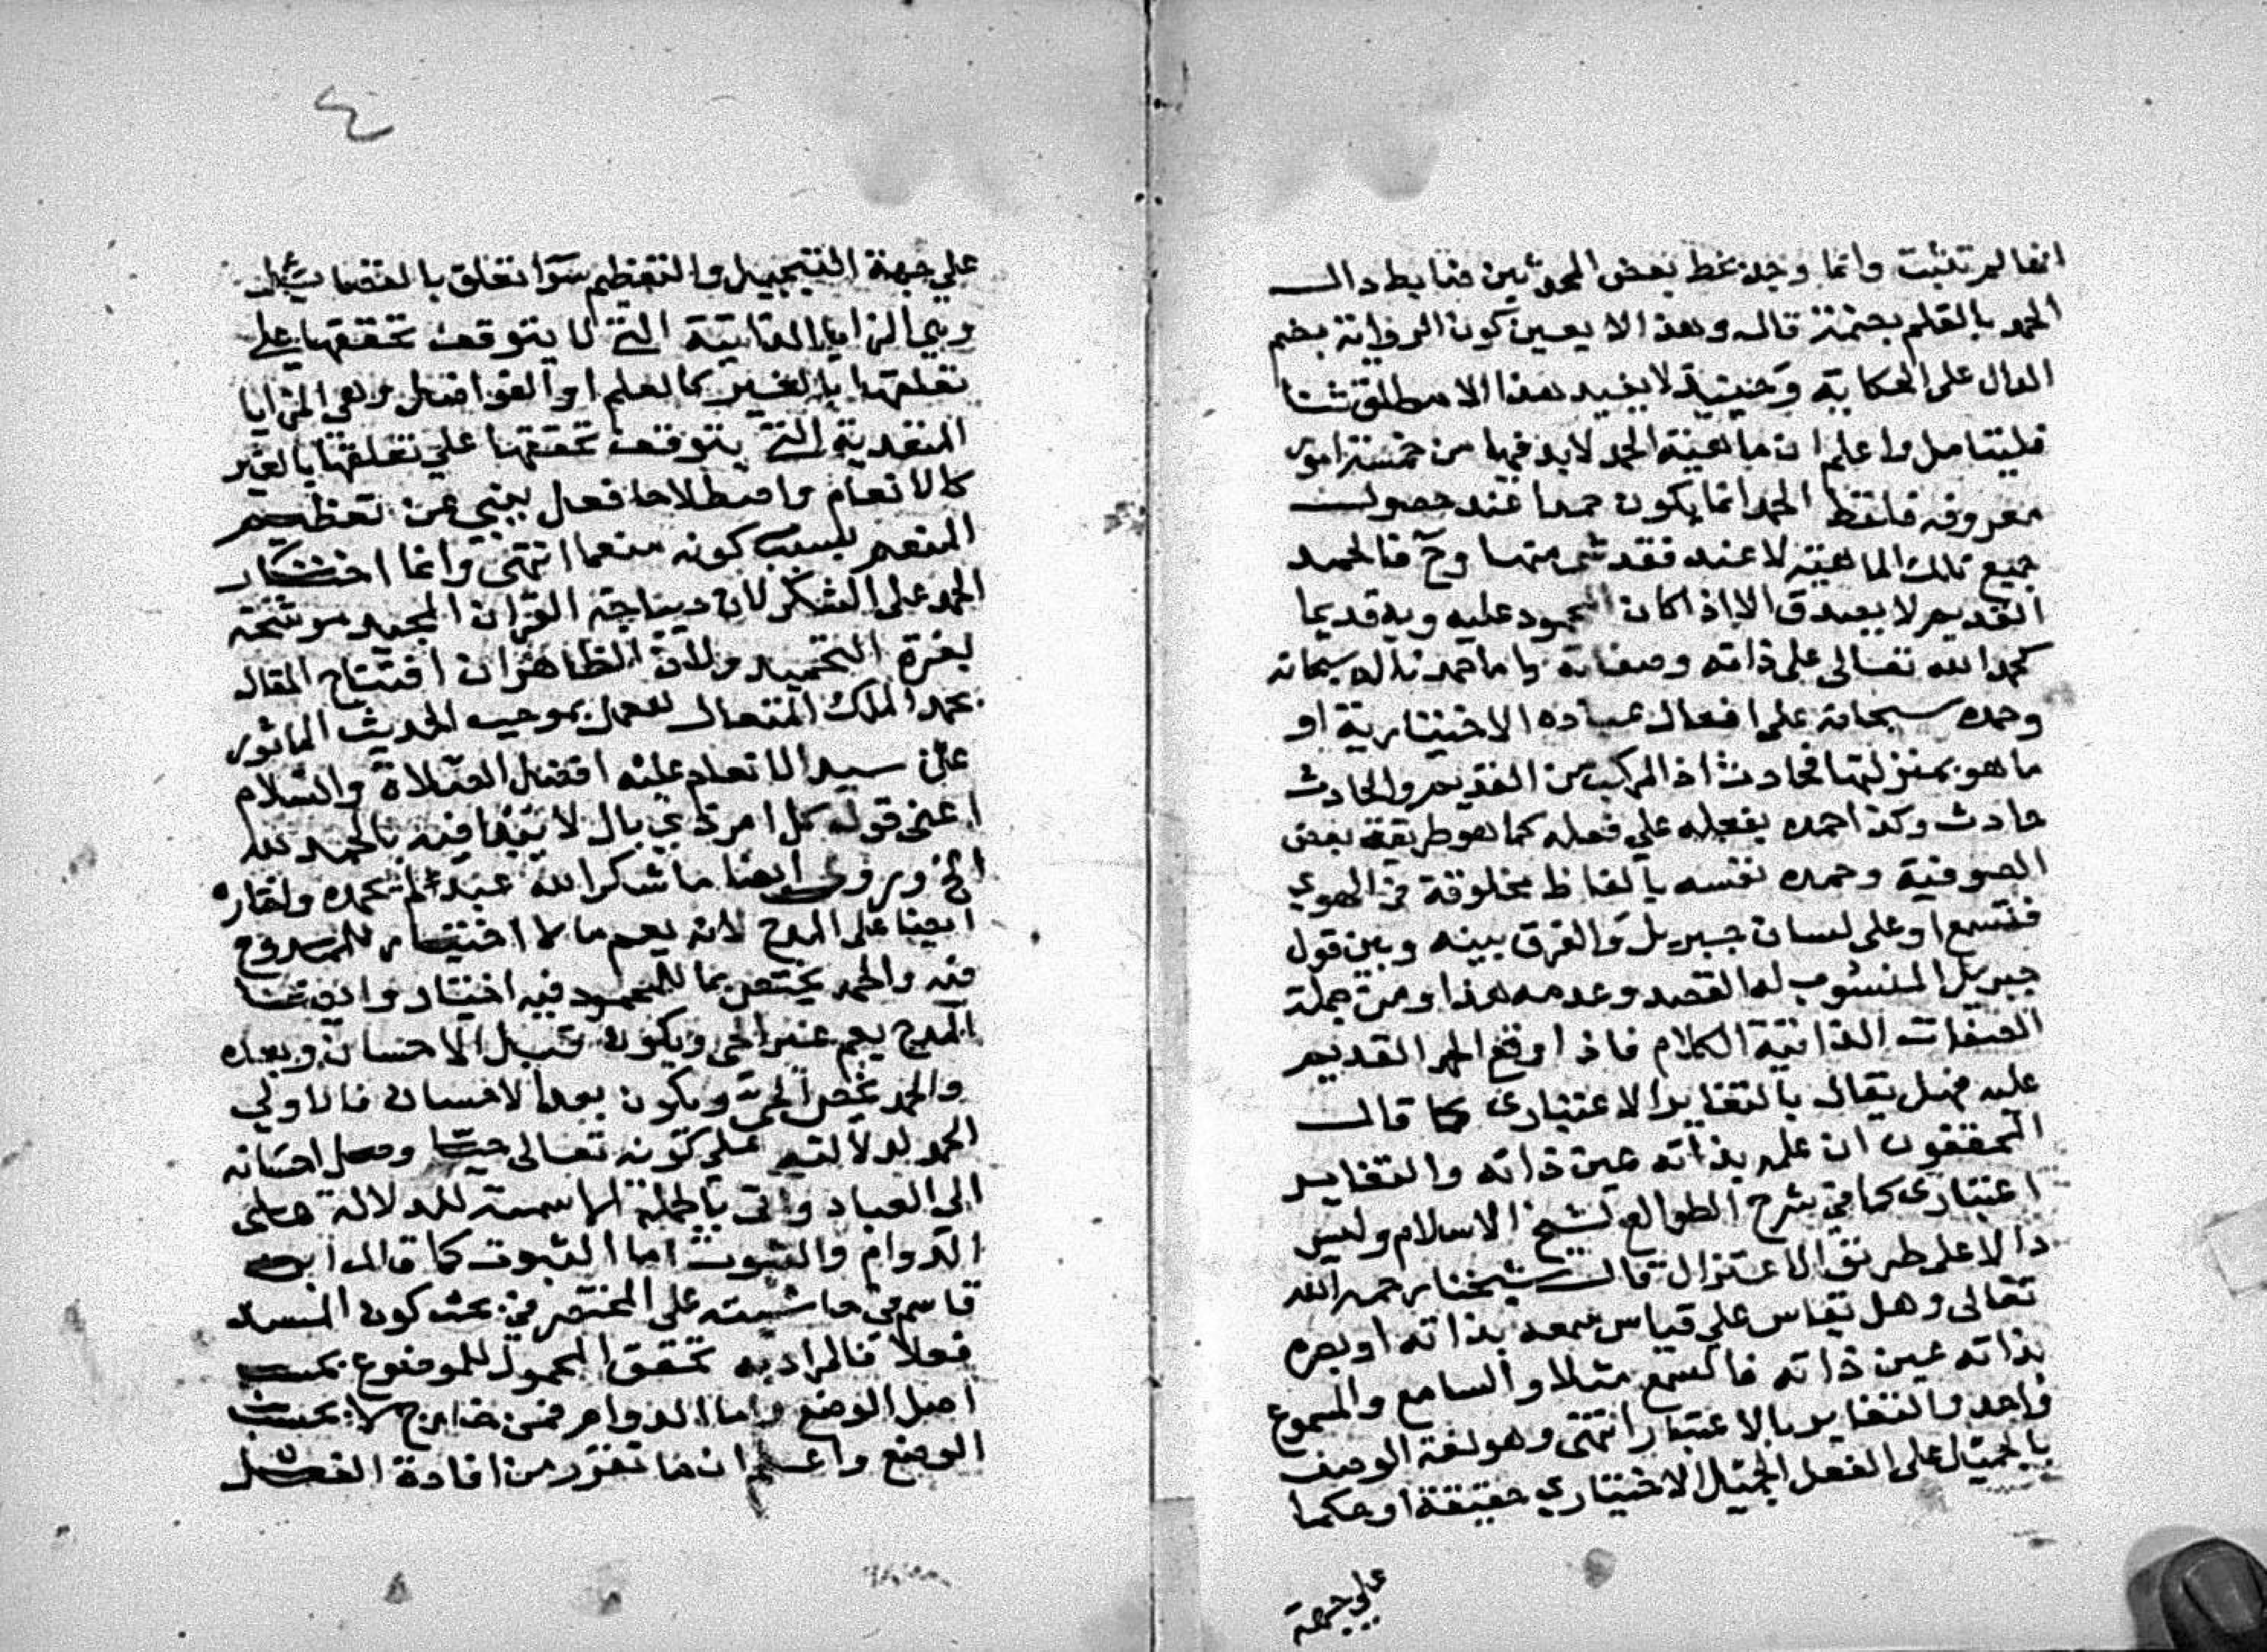 انها لم تثبت وانما وجد بخط بعض المحدثين ضابط دال
الحمد بالقلم بضمة قال وهذا لا يعين كون الرواية بضم
الدال على الحكاية وحينئذ لا يفيد هذا الا مطلق ثنا
فليتامل واعلم ان ماهية الحمد لابد فيها من خمسة امور
معروفه فلفظ الحمد انما يكون حمدا عند حصول
جميع تلك الماهية لا عند فقد شي منها وح فالحمد
القديم لا يصدق الا اذا كان المحمود عليه وبه قديما
كحمد الله تعالى على ذاته وصفاته واما حمدنا له سبحانه
وحمده سبحانه على افعال عباده الاختيارية او
ما هو بمنزلتها فحادث اذ المركب من القديم والحادث
حادث وكذا حمده بفعله على فعله كما هو طريقة بعض
الصوفية وحمده نفسه بالفاظ مخلوقة في الهوي
فتسمع او على لسان جبريل والفرق بينه وبين قول
جبريل المنسوب له القصد وعدمه هذا ومن جملة
الصفات الذاتية الكلام فاذا وقع الحمد القديم
عليه فهل يقال بالتغاير الاعتبارى كما قال
المحققون ان علمه بذاته عين ذاته والتغاير
اعتبارى كما في شرح الطوالع لشيخ الاسلام وليس
ذا الا على طريق الاعتزال قال شيخنا رحمه الله
تعالى وهل يقاس على قياس سمعه بذاته او بصره
بذاته عين ذاته فالسمع مثلا والسامع والمسموع
واحد والتغاير بالاعتبار انتهى وهو لغة الوصف
بالجميل على الفعل الجميل الاختياري حقيقة او حكما
على جهة
٤
على جهة التبجيل والتعظيم سوا تعلق بالفضايل
وهي المزايا الذاتية التي لا يتوقف تحققها على
تعلقها بالغير كالعلم او الفواضل وهي المزايا
المتعدية التي يتوقف تحققها علي تعلقها بالغير
كالانعام واصطلاحا فعل ينبي عن تعظيم
المنعم بسبب كونه منعما انتهى وانما اختار
الحمد على الشكر لان ديباجة القران المجيد موشحة
بغرة التحميد ولان الظاهر ان افتتاح المقال
بحمد الملك المتعال للعمل بموجب الحديث الماثور
عن سيد الانام عليه افضل الصلاة والسلام
اعني قوله كل امر ذي بال لا يبدا فيه بالحمد لله
الخ وروى ايضا ما شكر الله عبد لم يحمده واختاره
ايضا على المدح لانه يعم ما لا اختيار للممدوح
فيه والحمد يختص بما للمحمود فيه اختيار وايضا
المدح يعم غير الحي ويكون قبل الاحسان وبعده
والحمد يخص الحي ويكون بعد الاحسان فالاولي
الحمد لدلالته على كونه تعالى حيا وصل احسانه
الى العباد واتى بالجملة الاسمية للدلالة على
الدوام والثبوت اما الثبوت كما قال ابن
قاسم في حاشيته على المختصر في بحث كون المسند
فعلا فالمراد به تحقق المحمول للموضوع بحسب
اصل الوضع واما الدوام فمن خارج لا بحسب
الوضع واعلم ان ما تقرر من افادة الفعل